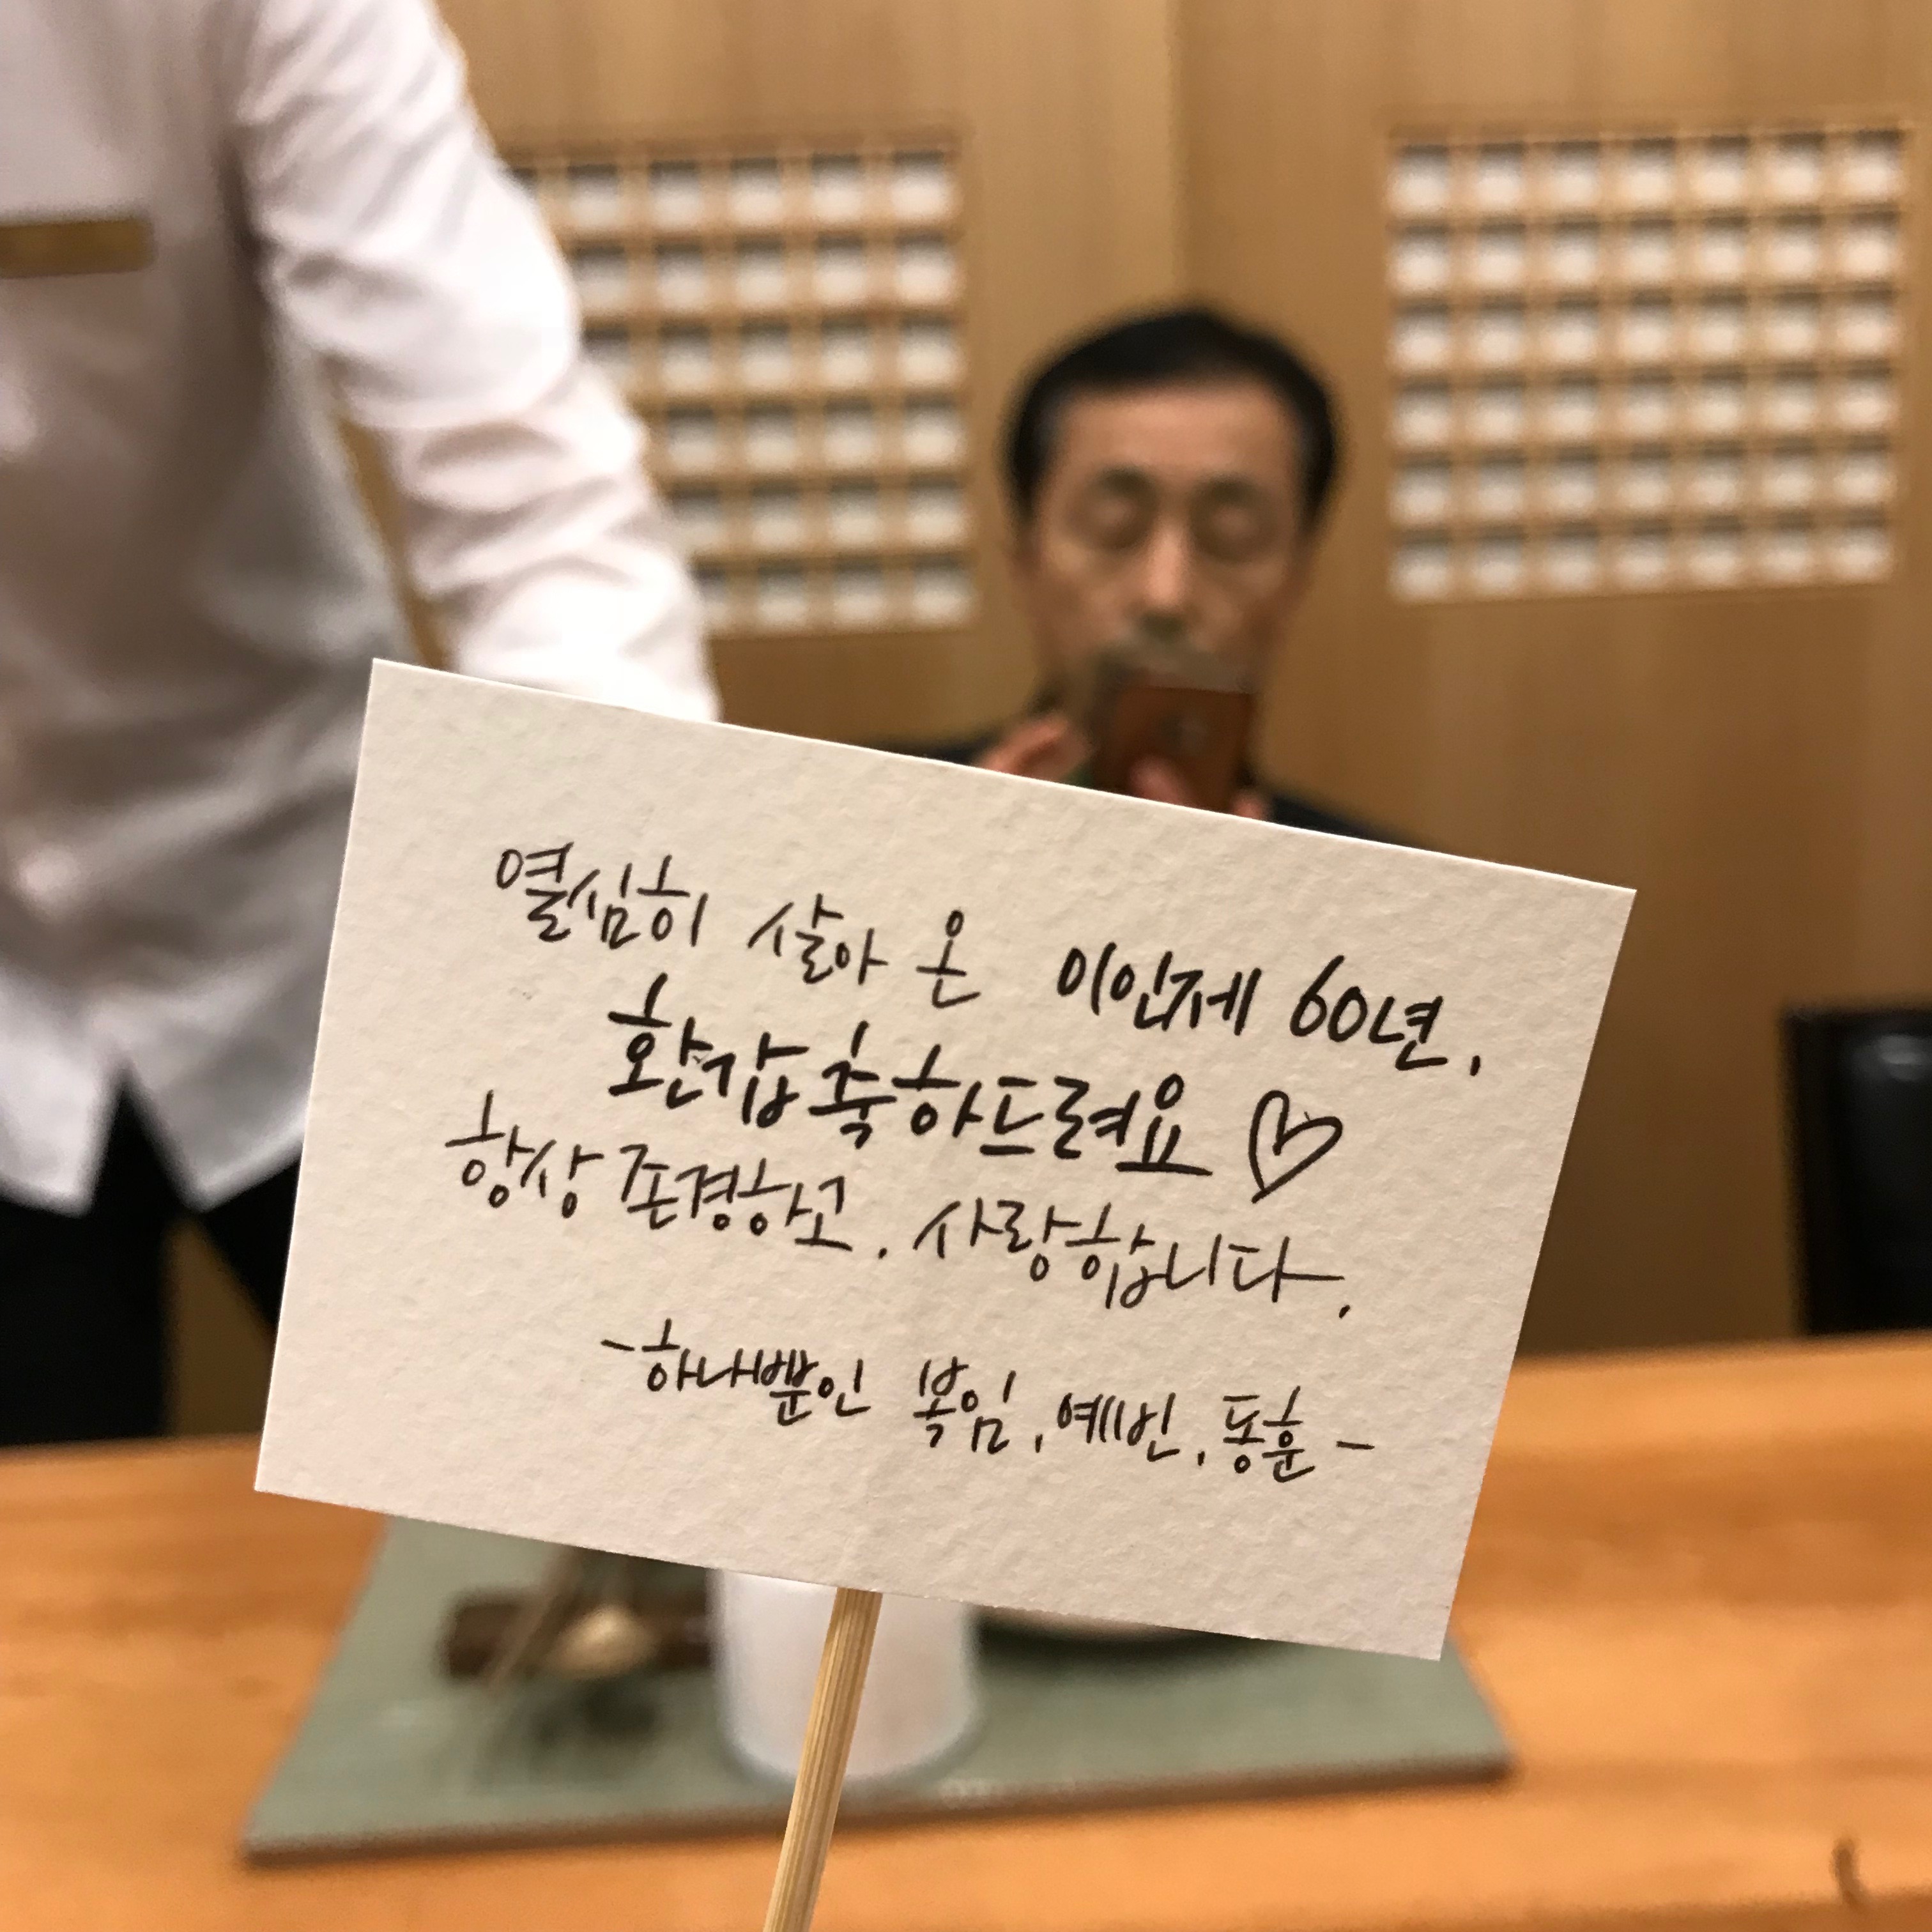 열심히 살아 온 이인제 60년.
환갑축하드려요 ♡
항상 존경하고. 사랑합니다.
-하나뿐인 복임, 예빈, 동훈-